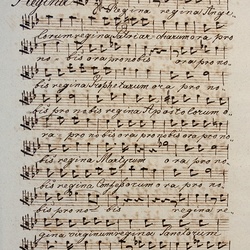 Regina
Regina regina Ange-
lorum regina Patriarcharum ora pro
no- bis ora pro nobis ora pro no-
bis regina Prophetarum ora pro no-
bis ora pro nobis regina Apostolorum o-
ra pro nobis ora pro nobis ora pro no-
bis regina Martyrum ora pro no-
bis regina Confessorum ora pro no-
bis pro no- bis regina re-
gina virginum regina Sanctorum